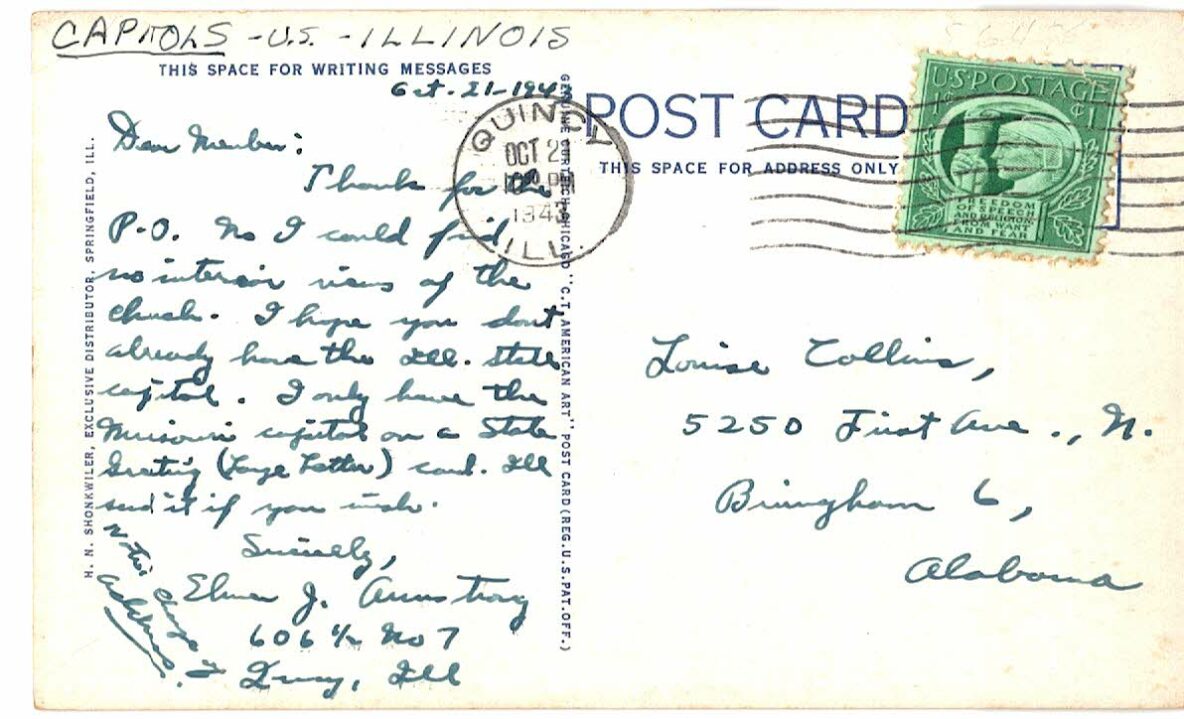 CAPITOLS - U.S. - ILLINOIS
THIS SPACE FOR WRITING MESSAGES
Oct. 21-1943
Dear Member:
Thanks for the
P.O. No I could find
no interior views of the
church. I hope you don't
already have the Ill. state
capitol. I only have the
Missouri capitol on a State
Greeting (Large Letter) card. Ill
send it if you wish.
Sincerely,
Elmer J. Armstrong
606 ½ No 7
Quincy, Ill
Notice change of
address.
H. N. SHONKWILER, EXCLUSIVE DISTRIBUTOR, SPRINGFIELD, ILL.
GENUINE CURTEICH-CHICAGO "C.T. AMERICAN ART" POST CARD (REG. U.S. PAT. OFF.)
QUINCY
OCT 2
PM
1943
ILL.
POST CARD
THIS SPACE FOR ADDRESS ONLY
U.S. POSTAGE
1¢ ¢1
FREEDOM
OF SPEECH
AND RELIGION,
FROM WANT
AND FEAR
Louise Collins,
5250 First Ave., N.
Birmingham 6,
Alabama